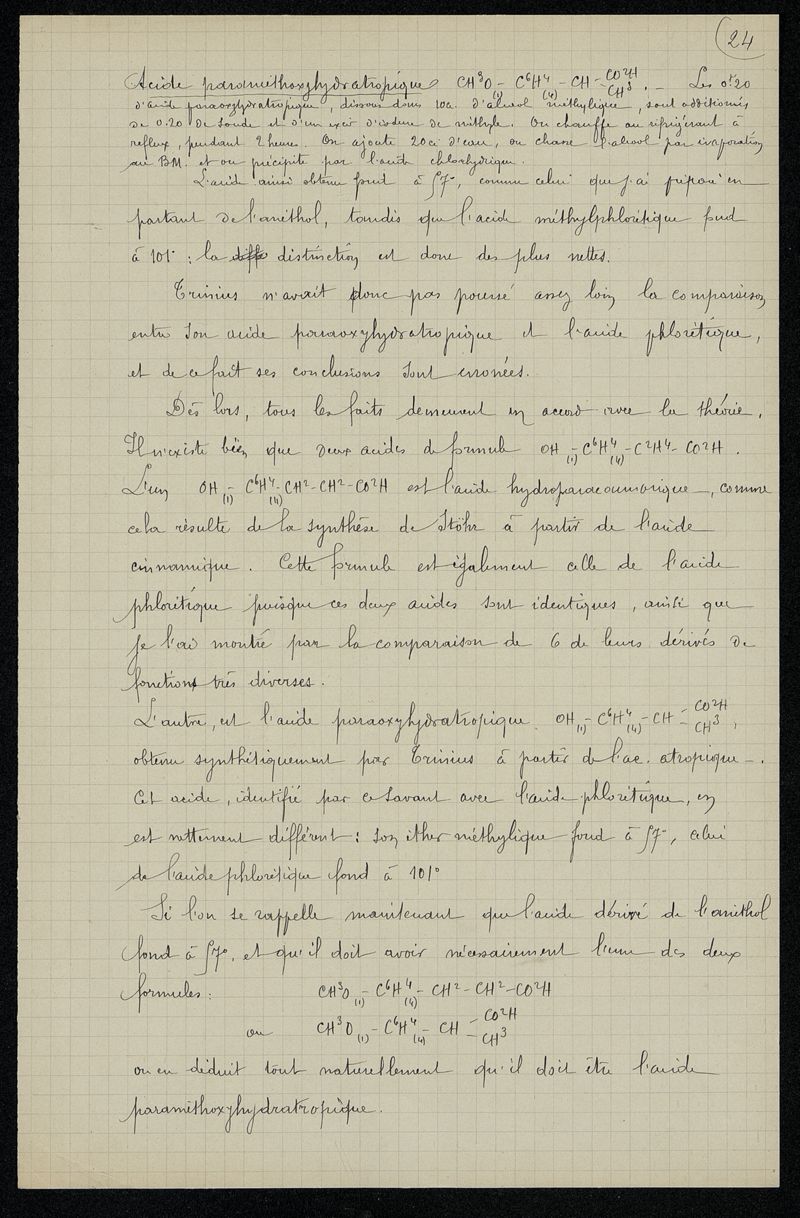 (24
Acide paraméthoxyhydratropique CH³O (1) – C⁶H⁴ (4) – CH = CO²H CH³ . – Les 0gr20
d'acide paraoxyhydratropique, dissous dans 10cc. d'alcool méthylique, sont additionnés
de 0.20 de soude et d'un excès d'iodure de méthyle. On chauffe au réfrigérant à
reflux, pendant 2 heures. On ajoute 20cc d'eau, on chasse l'alcool par évaporation
au BM. et on précipite par l'acide chlorhydrique.
L'acide ainsi obtenu fond à 57°, comme celui que j'ai préparé en
partant de l'anéthol, tandis que l'acide méthylphlorétique fond
à 101° : la diffe distinction est donc des plus nettes.
Trinius n'avait donc pas poussé assez loin la comparaison
entre son acide paraoxyhydratropique et l'acide phlorétique,
et de ce fait ses conclusions sont erronées.
Dès lors, tous les faits demeurent en accord avec la théorie.
Il n'existe bien que deux acides de formule OH (1) – C⁶H⁴ (4) – C²H⁴ – CO²H .
L'un OH (1) – C⁶H⁴ (4) – CH² – CH² – CO²H est l'acide hydroparacoumarique, comme
cela résulte de la synthèse de Stöhr à partir de l'acide
cinnamique. Cette formule est également celle de l'acide
phlorétique puisque ces deux acides sont identiques, ainsi que
je l'ai montré par la comparaison de 6 de leurs dérivés de
fonctions très diverses.
L'autre, est l'acide paraoxyhydratropique OH (1) – C⁶H⁴ (4) – CH = CO²H CH³ ,
obtenu synthétiquement par Trinius à partir de l'ac. atropique.
Cet acide, identifié par ce savant avec l'acide phlorétique, en
est nettement différent : son éther méthylique fond à 57°, celui
de l'acide phlorétique fond à 101°
Si l'on se rappelle maintenant que l'acide dérivé de l'anéthol
fond à 57°, et qu'il doit avoir nécessairement l'une des deux
formules : CH³O (1) – C⁶H⁴ (4) – CH² – CH² – CO²H
ou CH³O (1) – C⁶H⁴ (4) – CH = CO²H CH³
on en déduit tout naturellement qu'il doit être l'acide
paraméthoxyhydratropique.